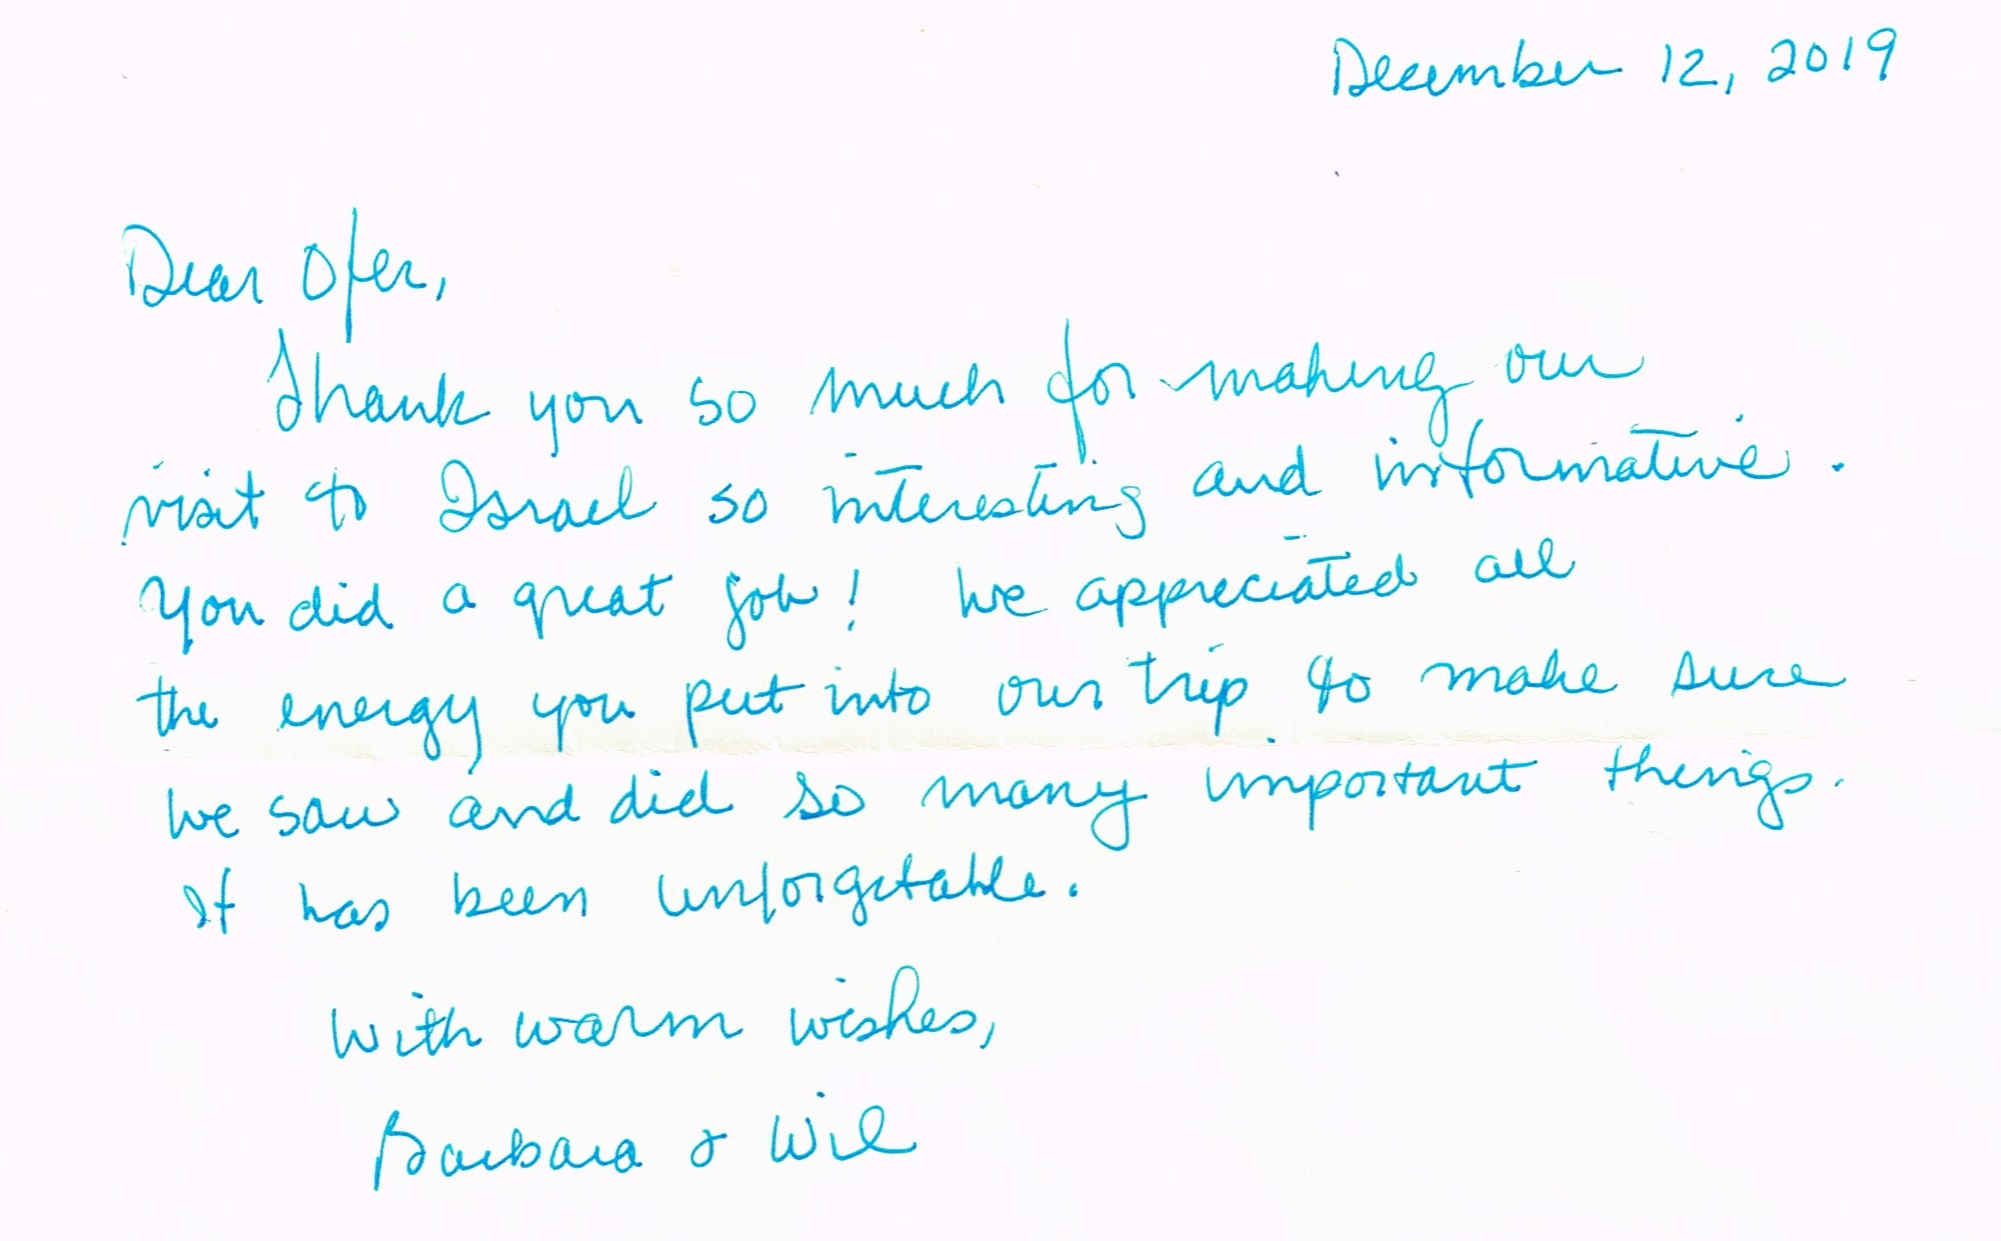 December 12, 2019
Dear Ofer,
Thank you so much for making our
visit to Israel so interesting and informative.
You did a great job! We appreciated all
the energy you put into our trip to make sure
we saw and did so many important things.
It has been unforgetable.
With warm wishes,
Barbara & Wil